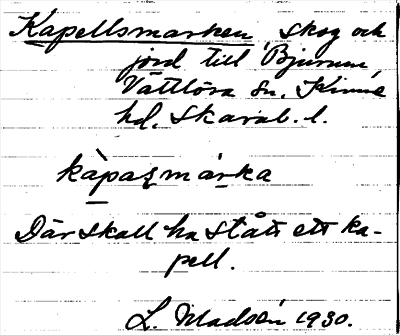 Kapellsmarken, skog och
jord till Bjurum,
Vättlösa sn. Kinne
hd. Skarab. l.
kàpaʂmárka
Där skall ha stått ett ka-
pell.
L. Madsén 1930.